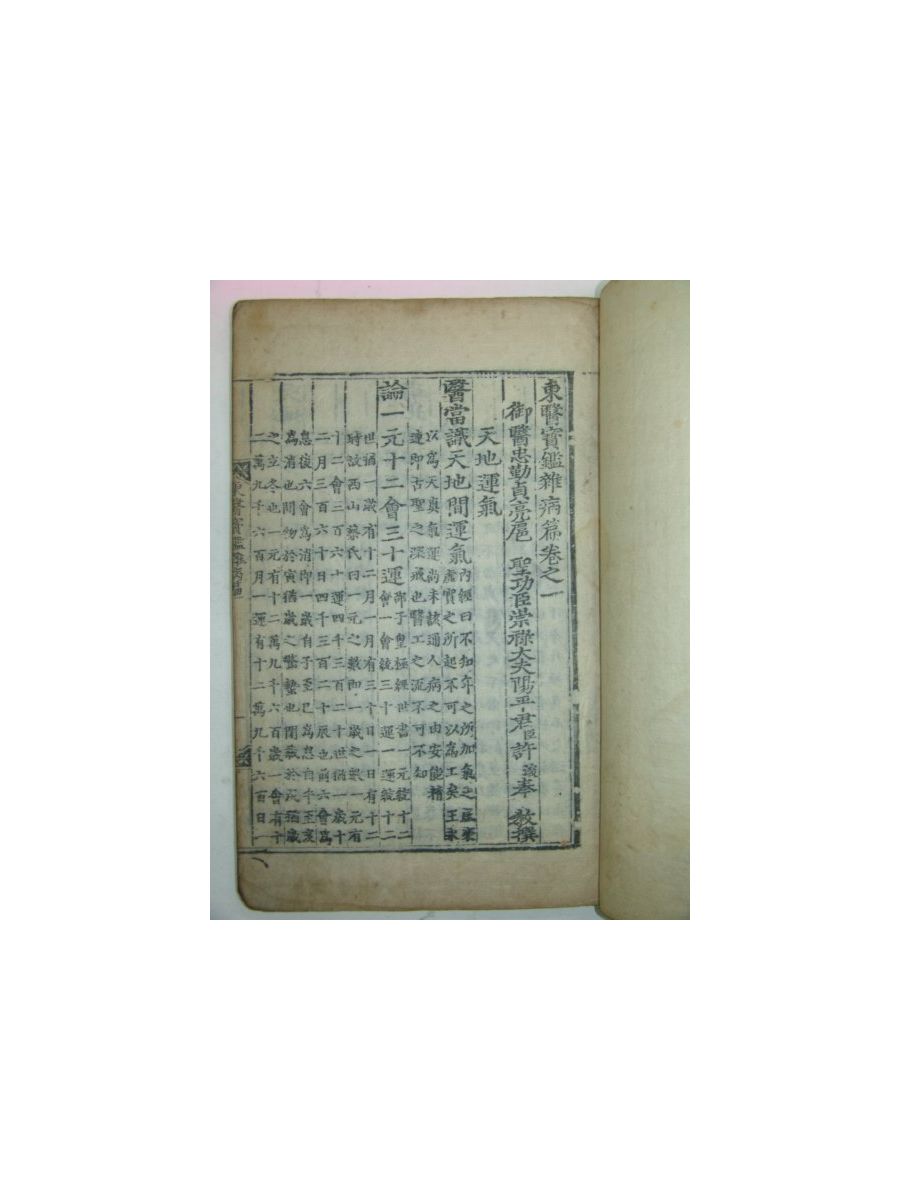 東醫寶鑑雜病篇卷之一
御醫忠勤貞亮扈 聖功臣崇祿大夫陽平君臣許浚奉 敎撰
天地運氣
醫當識天地間運氣
內經曰不知年之所加氣之盛衰
虛實之所起不可以爲工矣王氷
以爲天眞氣運尚未該通人病之由安能精
達卽古聖之深戒也醫工之流不可不知
論一元十二會三十運
邵子皇極經世書一元統十二
會一會統三十運一運統十二
世猶一歲有十二月一月有三十日一日有十二
時故西山蔡氏曰一元之數卽一歲之數一元有
十二會三百六十運四千三百二十世猶一歲十
二月三百六十日四千三百二十辰也前六會爲
息後六會爲消卽一歲自子至巳爲息自午至亥
爲消也開物於寅猶歲之驚蟄也閉藏於戌猶歲
之立冬也一元有十二萬九千六百歲一會有十
二萬九千六百月一運有十二萬九千六百日一
東醫寶鑑雜病篇一
一